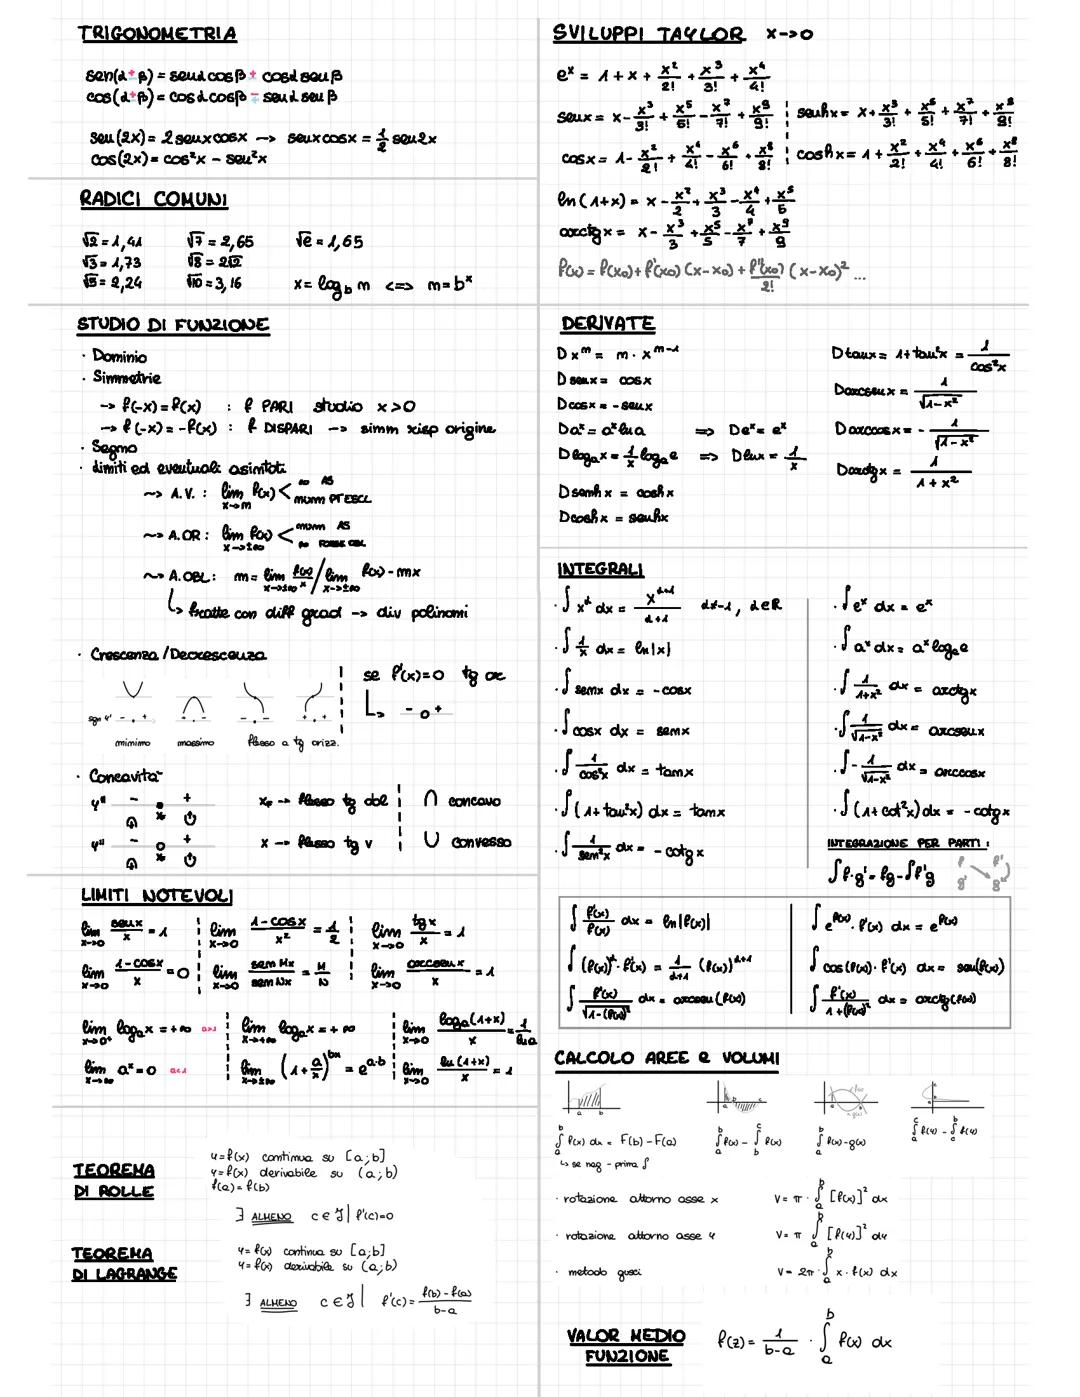 TRIGONOMETRIA
sen(α ± β) = senα cosβ ± cosα senβ
cos(α ± β) = cosα cosβ ∓ senα senβ
sen(2x) = 2 senx cosx –> senx cosx = 1/2 sen2x
cos(2x) = cos²x – sen²x
RADICI COMUNI
√2 = 1,41 √7 = 2,65 √e = 1,65
√3 = 1,73 √8 = 2√2
√5 = 2,24 √10 = 3,16 x = log_b m <=> m = b^x
STUDIO DI FUNZIONE
· Dominio
· Simmetrie
–> f(-x) = f(x) : f PARI studio x>0
–> f(-x) = -f(x) : f DISPARI –> simm risp origine
· Segno
· limiti ed eventuali asintoti
~> A.V. : lim x->m f(x) < ∞ AS
num PT ESCL
~> A.OR : lim x->±∞ f(x) < num AS
∞ FORSE OBL
~> A.OBL : m = lim x->±∞ f(x)/x / lim x->±∞ f(x) - mx
↳ fratte con diff grad –> div polinomi
· Crescenza/Decrescenza
se f'(x)=0 tg or
- o +
sgn y' - · + + · - - · - + · +
minimo massimo flesso a tg orizz.
· Concavità
y" - +
x_F –> flesso tg obl ∩ concavo
y" - o +
x –> flesso tg v ∪ convesso
LIMITI NOTEVOLI
lim x->0 senx/x = 1 lim x->0 (1-cosx)/x² = 1/2 lim x->0 tgx/x = 1
lim x->0 (1-cosx)/x = 0 lim x->0 sen Mx/sen Nx = M/N lim x->0 arcsenx/x = 1
lim x->0⁺ log_a x = +∞ a>1 lim x->+∞ log_a x = +∞ lim x->0 log_a(1+x)/x = 1/lna
lim x->∞ a^x = 0 a<1 lim x->±∞ (1 + a/x)^bx = e^a·b lim x->0 ln(1+x)/x = 1
TEOREMA
DI ROLLE
y=f(x) continua su [a;b]
y=f(x) derivabile su (a;b)
f(a) = f(b)
∃ ALMENO c ∈ J | f'(c)=0
TEOREMA
DI LAGRANGE
y=f(x) continua su [a;b]
y=f(x) derivabile su (a;b)
∃ ALMENO c ∈ J | f'(c) = (f(b) - f(a))/(b-a)
SVILUPPI TAYLOR x->0
e^x = 1 + x + x²/2! + x³/3! + x⁴/4!
senx = x - x³/3! + x⁵/5! - x⁷/7! + x⁹/9! senhx = x + x³/3! + x⁵/5! + x⁷/7! + x⁹/9!
cosx = 1 - x²/2! + x⁴/4! - x⁶/6! + x⁸/8! coshx = 1 + x²/2! + x⁴/4! + x⁶/6! + x⁸/8!
ln(1+x) = x - x²/2 + x³/3 - x⁴/4 + x⁵/5
arctgx = x - x³/3 + x⁵/5 - x⁷/7 + x⁹/9
f(x) = f(x₀) + f'(x₀)(x-x₀) + f"(x₀)/2! (x-x₀)² ...
DERIVATE
D x^m = m · x^m-1 D tanx = 1+tan²x = 1/cos²x
D senx = cosx D arcsenx = 1/√1-x²
D cosx = -senx
D a^x = a^x lna => De^x = e^x D arccosx = - 1/√1-x²
D log_a x = 1/x log_a e => D lnx = 1/x D arctgx = 1/(1+x²)
D senhx = coshx
D coshx = senhx
INTEGRALI
· ∫ x^α dx = x^α+1/(α+1) α≠-1, α∈R · ∫ e^x dx = e^x
· ∫ 1/x dx = ln|x| · ∫ a^x dx = a^x log_a e
· ∫ senx dx = -cosx · ∫ 1/(1+x²) dx = arctgx
· ∫ cosx dx = senx · ∫ 1/√1-x² dx = arcsenx
· ∫ 1/cos²x dx = tanx · ∫ - 1/√1-x² dx = arccosx
· ∫ (1+tan²x) dx = tanx · ∫ (1+cot²x) dx = -cotgx
· ∫ 1/sen²x dx = -cotgx
INTEGRAZIONE PER PARTI :
∫ f·g' = fg - ∫ f'g f f'
g' g
∫ f'(x)/f(x) dx = ln|f(x)| ∫ e^f(x) · f'(x) dx = e^f(x)
∫ (f(x))^α · f'(x) = 1/(α+1) (f(x))^α+1 ∫ cos(f(x)) · f'(x) dx = sen(f(x))
∫ f'(x)/√1-(f(x))² dx = arcsen(f(x)) ∫ f'(x)/(1+(f(x))²) dx = arctg(f(x))
CALCOLO AREE e VOLUMI
∫ₐᵇ f(x) dx = F(b) - F(a) ∫ₐᵇ f(x) - ∫_b^c f(x) ∫ₐᵇ f(x) - g(x) ∫ₐᶜ f(y) - ∫_c^b f(y)
↳ se neg - prima ∫
· rotazione attorno asse x V = π · ∫ₐᵇ [f(x)]² dx
· rotazione attorno asse y V = π ∫ₐᵇ [f(y)]² dy
· metodo gusci V = 2π · ∫ₐᵇ x · f(x) dx
VALOR MEDIO
FUNZIONE
f(z) = 1/(b-a) · ∫ₐᵇ f(x) dx